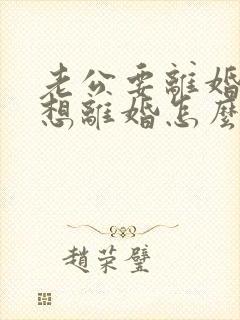 老公要離婚
想離婚怎麼
趙荣璧